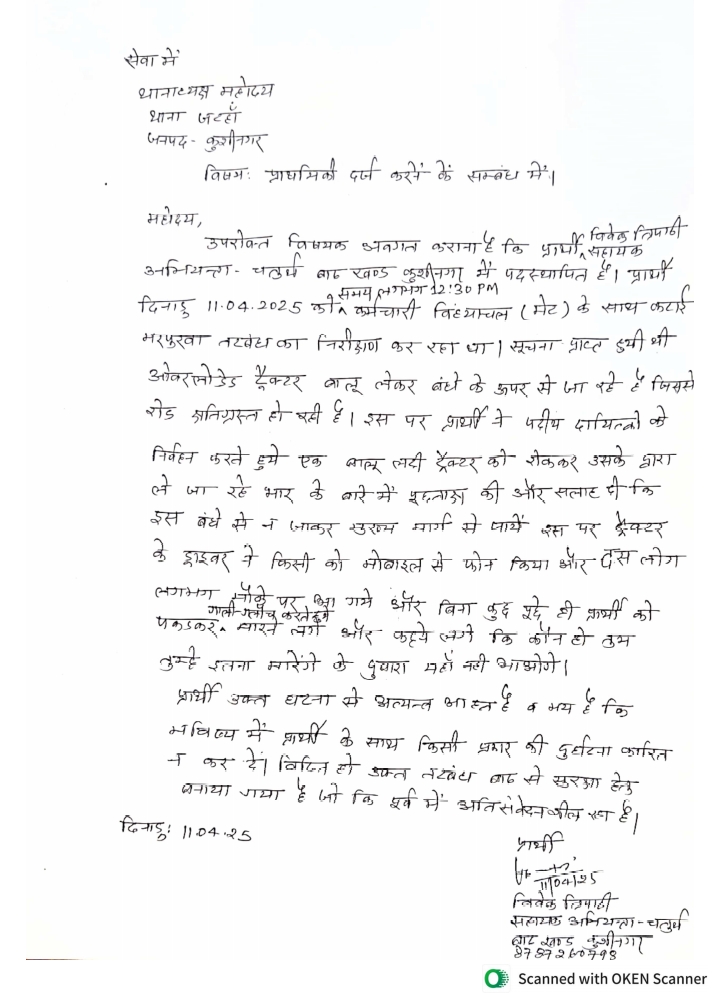 सेवा में
थानाध्यक्ष महोदय
थाना जटहाँ
जनपद - कुशीनगर
विषय: प्राथमिकी दर्ज करने के सम्बंध में।
महोदय,
उपरोक्त विषयक अवगत कराना है कि प्रार्थी विवेक त्रिपाठी सहायक
अभियन्ता - चतुर्थ बाढ़ खण्ड कुशीनगर में पदस्थापित है। प्रार्थी
दिनाङ्क 11.04.2025 को समय लगभग 12:30 PM कर्मचारी विंध्याचल (मेट) के साथ कटाई
भरपुरवा तटबंध का निरीक्षण कर रहा था। सूचना प्राप्त हुयी थी
ओवरलोडेड ट्रैक्टर बालू लेकर बंधे के ऊपर से जा रहे है जिससे
रोड क्षतिग्रस्त हो रही है। इस पर प्रार्थी ने पदीय दायित्वो के
निर्वहन करते हुये एक बालू लदी ट्रैक्टर को रोककर उसके द्वारा
ले जा रहे भार के बारे में पूछताछ की और सलाह दी कि
इस बंधे से न जाकर मुख्य मार्ग से जायें इस पर ट्रैक्टर
के ड्राइवर ने किसी को मोबाइल से फोन किया और दस लोग
लगभग मौके पर आ गये और बिना कुछ पूछे ही प्रार्थी को
पकडकर गाली-गलौच करते हुये मारने लगे और कहने लगे कि कौन हो तुम
तुम्हे इतना मारेंगे के दुबारा यहाँ नही आओगे।
प्रार्थी उक्त घटना से अत्यन्त आहत है व भय है कि
भविष्य में प्रार्थी के साथ किसी प्रकार की दुर्घटना कारित
न कर दें। विदित हो उक्त तटबंध बाढ से सुरक्षा हेतु
बनाया गया है जो कि पूर्व में अतिसंवेदनशील रहा है।
दिनाङ्क: 11.04.25
प्रार्थी
11/04/25
विवेक त्रिपाठी
सहायक अभियन्ता - चतुर्थ
बाढ खण्ड कुशीनगर
8787260798
Scanned with OKEN Scanner